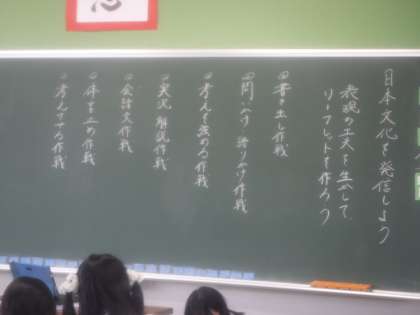 日本文化を発信しよう
表現の工夫を生かして
リーフレットを作ろう
書き出し作戦
問いかけ 語りかけ作戦
考えを強める作戦
実況 解説作戦
会話文作戦
体言止め作戦
考えさせる作戦